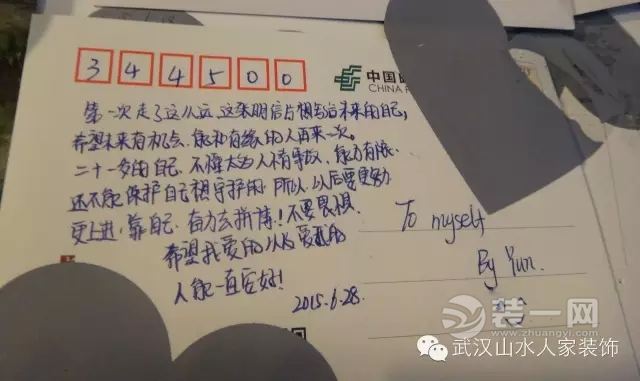 344500
中国邮
CHINA
第一次走了这么远,这张明信片想写给未来的自己,
希望未来有机会,能和有缘的人再来一次。
二十一岁的自己,不懂太多人情事故,能力有限,
还不能保护自己想守护的,所以,以后要更努力
更上进,靠自己,奋力去拼搏!不要畏惧.
希望我爱的以及爱我的
人能一直安好!
2015.6.28.
To myself
By Yun.
装一网
www.zhuangyi.com
武汉山水人家装饰